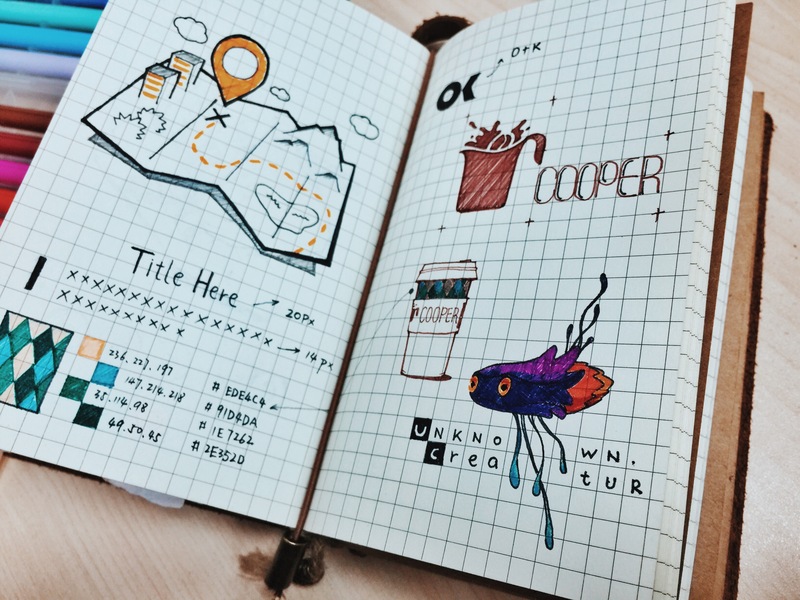 Title Here
20px
xxxxxxxxxxxxxxxxxx
xxxxxxxxxx
14 px
236.227.197
147.214.218
35.114.98
49.50.45
# EDE4C4
# 91D4DA
# 1E7262
# 2E352D
D+K
OK
COOPER
COOPER
UNKNOWN.
CreatUR